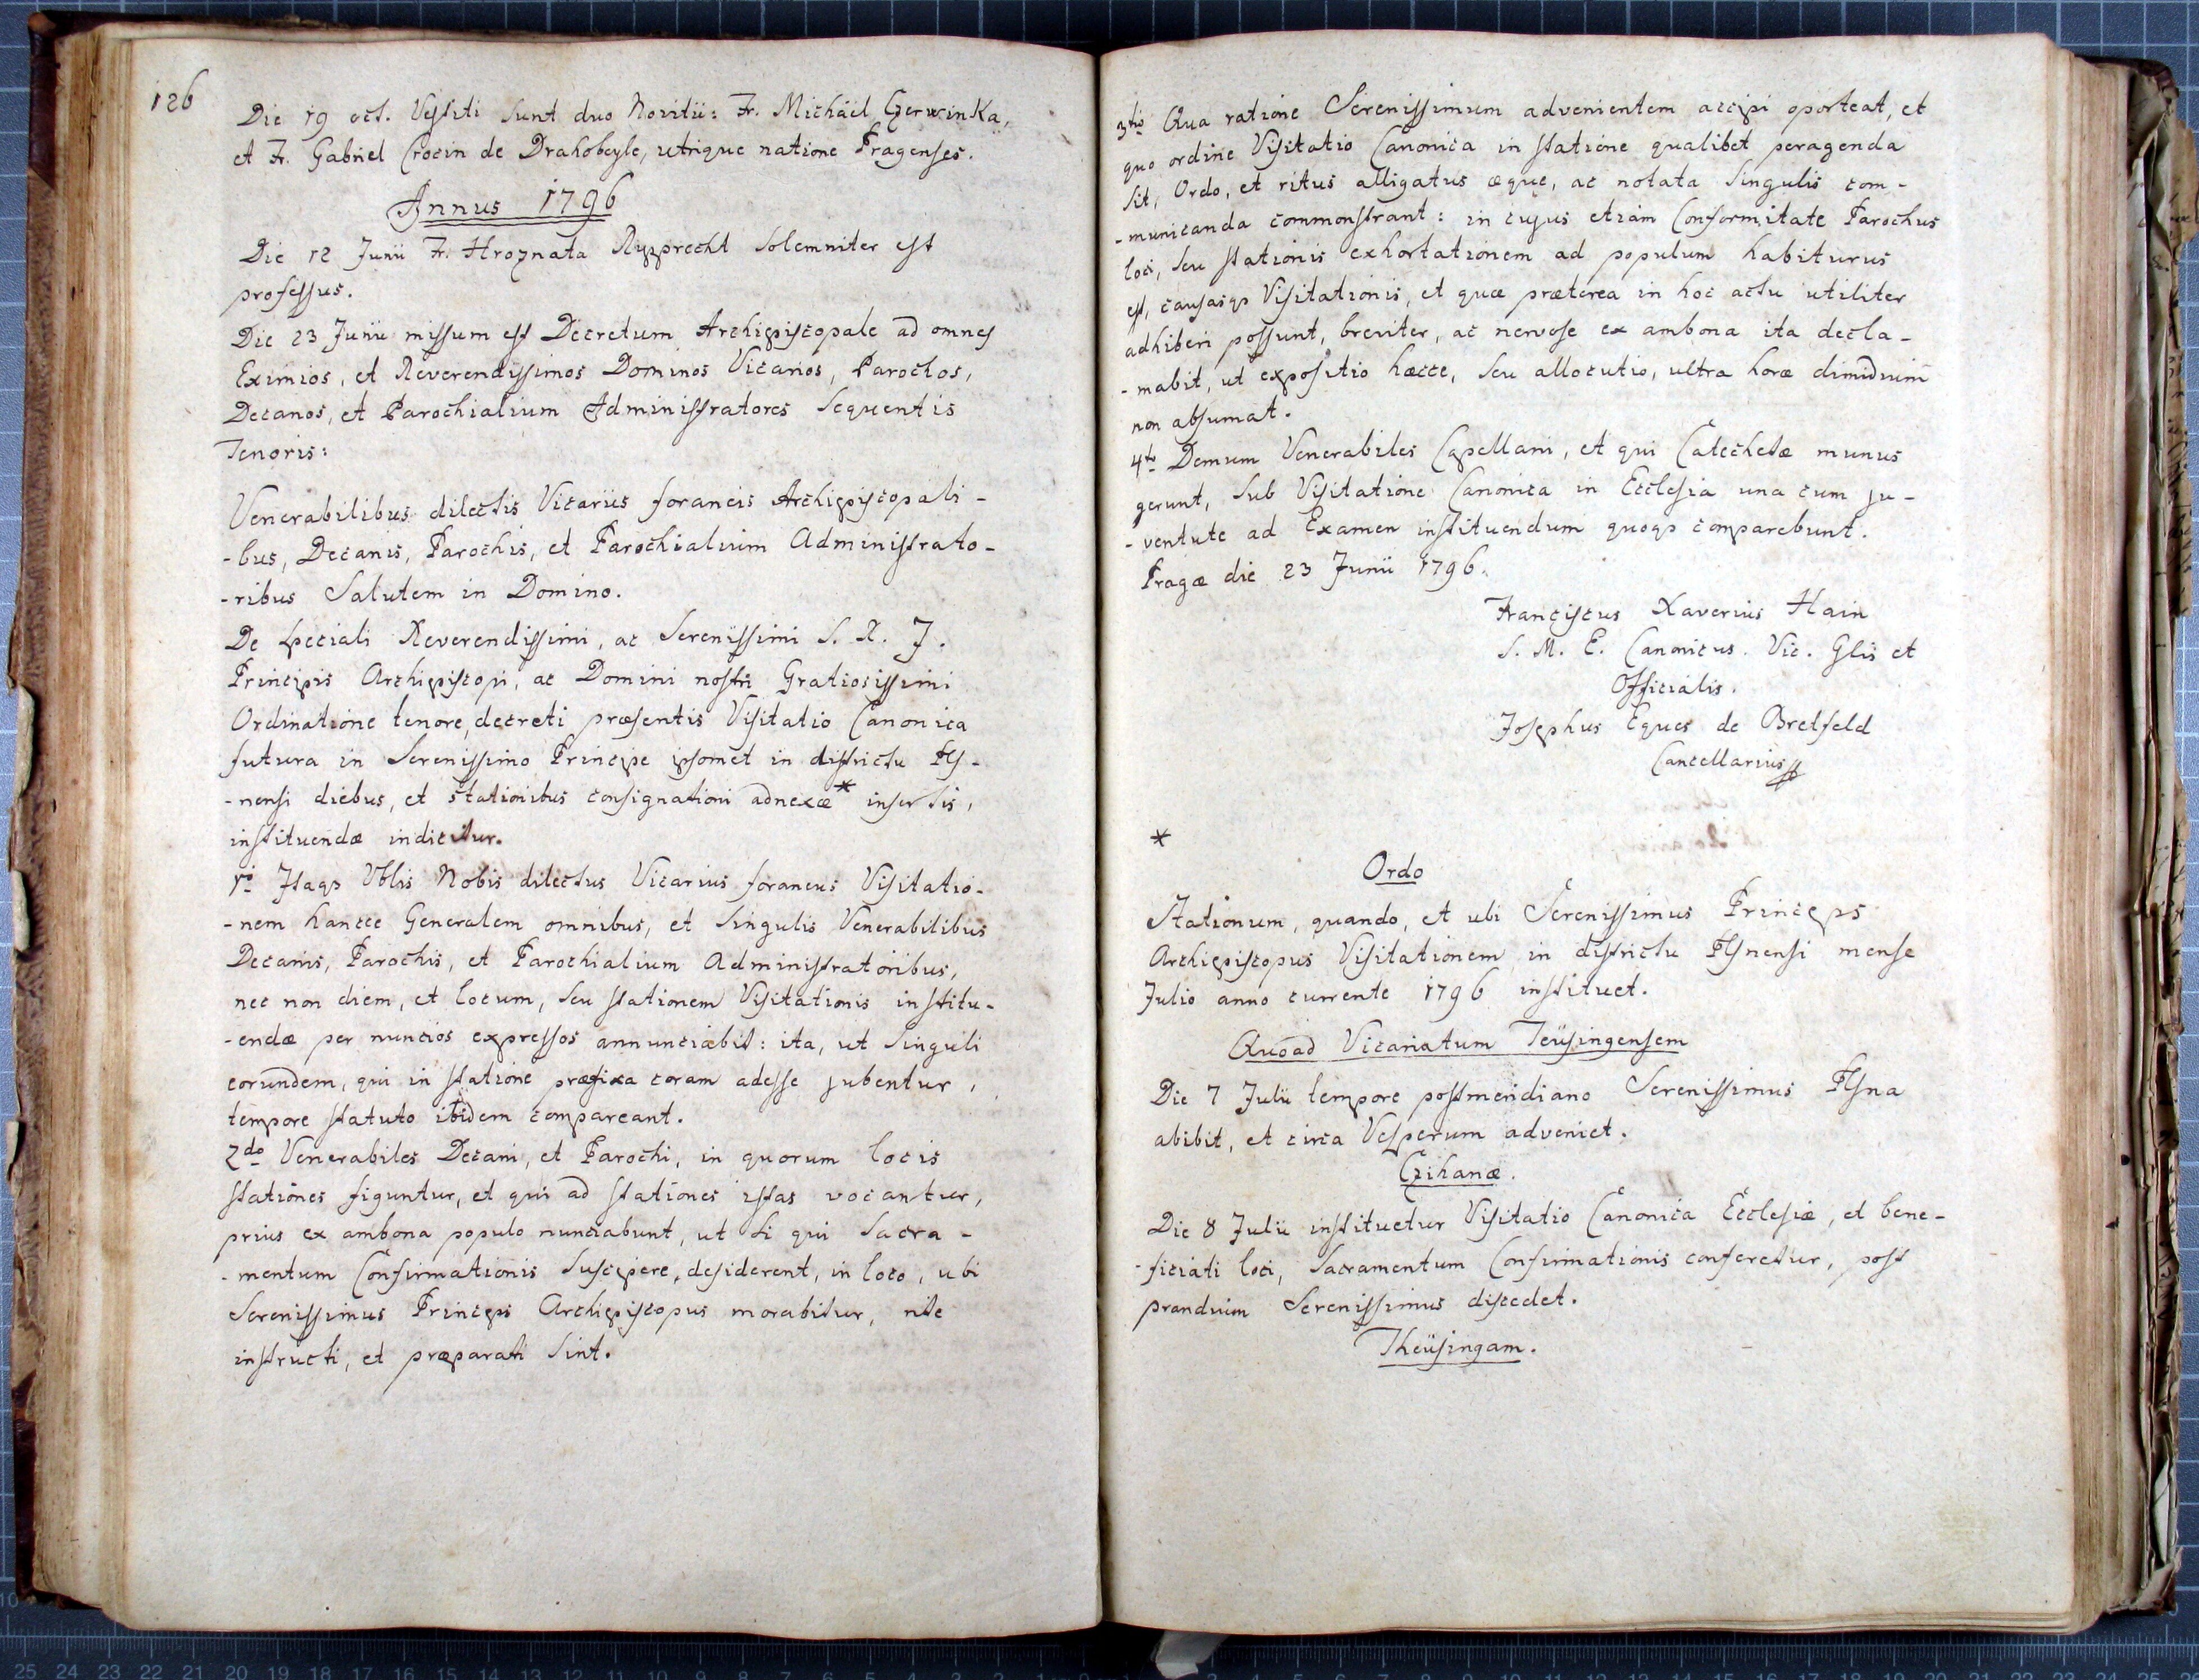 126
Die 19 oct. Vestiti sunt duo Novitii: Fr. Michäel Czerwinka,
et Fr. Gabriel Crocin de Drahobeyle, utrique natione Pragenses.
Annus 1796
Die 12 Junii Fr. Hroznata Rupprecht solemniter est
professus.
Die 23 Junii missum est Decretum Archiepiscopale ad omnes
Eximios, et Reverendissimos Dominos Vicarios, Parochos,
Decanos, et Parochialium Administratores sequentis
Tenoris:
Venerabilibus dilectis Vicariis foraneis Archiepiscopali-
-bus, Decanis, Parochis, et Parochialium Administrato-
-ribus Salutem in Domino.
De speciali Reverendissimi, ac Serenissimi S. R. J.
Principis Archiepiscopi, ac Domini nostri Gratiosissimi
Ordinatione tenore, decreti præsentis Visitatio Canonica
futura in Serenissimo Principe ipsomet in districtu Pls-
-nensi diebus, et stationibus consignationi adnexæ * insertis,
instituendæ indicitur.
1mo Itaqs Vblis Nobis dilectus Vicarius foraneus Visitatio-
-nem hancce Generalem omnibus, et singulis Venerabilibus
Decanis, Parochis, et Parochialium Administratoribus,
nec non diem, et locum, seu stationem Visitationis institu-
-endæ per nuncios expressos annunciabit: ita, ut singuli
eorundem, qui in statione præfixa coram adesse jubentur,
tempore statuto ibidem compareant.
2do Venerabiles Decani, et Parochi, in quorum locis
stationes figuntur, et qui ad stationes istas vocantur,
prius ex ambona populo nunciabunt, ut si qui Sacra-
-mentum Confirmationis suscipere desiderent, in loco, ubi
Serenissimus Princeps Archiepiscopus morabitur, rite
instructi, et præparati sint.
3tio Qua ratione Serenissimum advenientem accipi oporteat, et
quo ordine Visitatio Canonica in statione qualibet peragenda
sit, Ordo, et ritus alligatus æque, ac notata singulis com-
-municanda commonstrant: in cujus etiam Conformitate Parochus
loci, seu stationis exhortationem ad populum habiturus
est, causasqs Visitationis, et quæ præterea in hoc actu utiliter
adhiberi possunt, breviter, ac nervose ex ambona ita decla-
-mabit, ut expositio hæcce, seu allocutio, ultra horæ dimidium
non absumat.
4to Demum Venerabiles Capellani, et qui Catechetæ munus
gerunt, sub Visitatione Canonica in Ecclesia una cum ju-
-ventute ad Examen instituendum quoqs comparebunt.
Pragæ die 23 Junii 1796.
Franciscus Xaverius Hain
S. M. E. Canonicus. Vic. Glis et
Officialis.
Josephus Eques de Bretfeld
Cancellarius
*
Ordo
Stationum, quando, et ubi Serenissimus Princeps
Archiepiscopus Visitationem in districtu Plsnensi mense
Julio anno currente 1796 instituet.
Quoad Vicariatum Teüsingensem
Die 7 Julii tempore postmeridiano Serenissimus Plsna
abibit, et circa Vesperum adveniet.
Czihanæ.
Die 8 Julii instituetur Visitatio Canonica Ecclesiæ, et bene-
-ficiati loci, Sacramentum Confirmationis conferetur, post
prandium Serenissimus discedet.
Theüsingam.